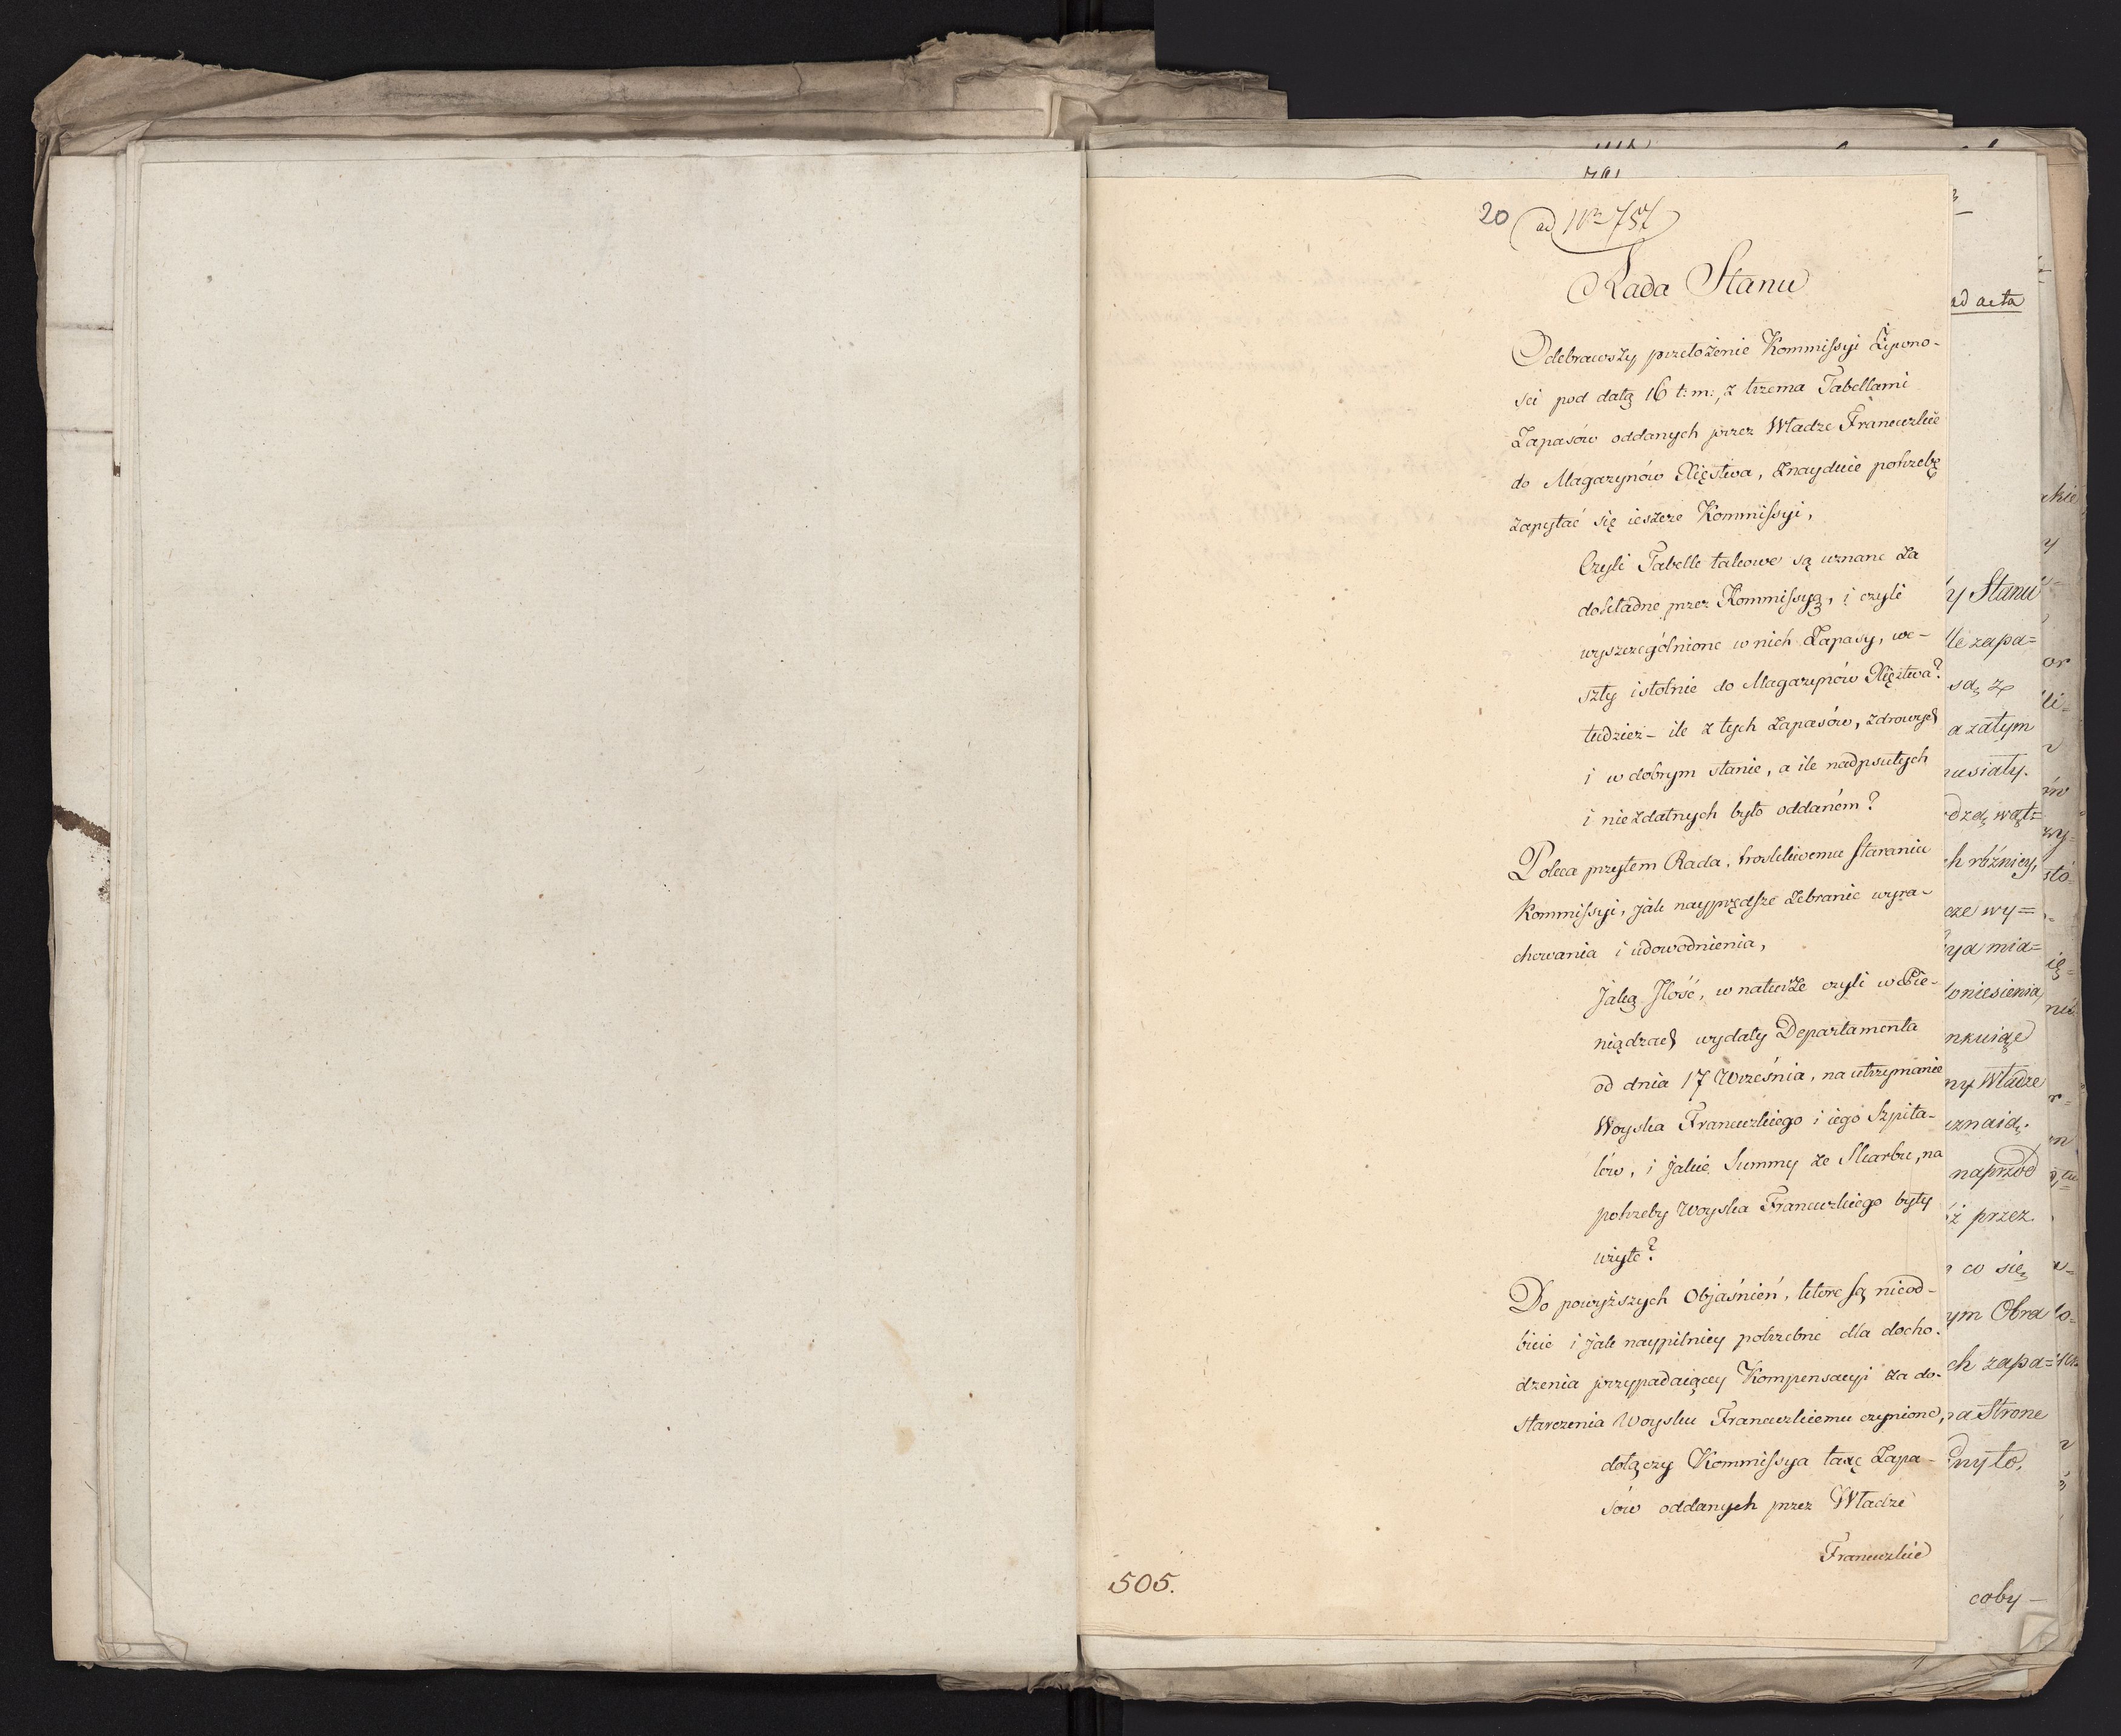 20 ad Nr 757
Rada Stanu
Odebrawszy przełożenie Kommissyi Żywno-
sci pod datą 16 t: m:, z trzema Tabellami
Zapasów oddanych przez Władze Francuzkie
do Magazynów Xięstwa, znayduie potrzebę
zapytać się ieszcze Kommissyi,
Czyli Tabelle takowe są uznane za
dokładne przez Kommissyą, i czyli
wyszczególnione w nich Zapasy, we-
szły istotnie do Magazynów Xięztwa?
tudzież – ile z tych zapasów, zdrowych
i w dobrym stanie, a ile nadpsutych
i niezdatnych było oddaném?
Poleca przytem Rada, troskliwemu staraniu
Kommissyi, jak nayprędsze zebranie wyra-
chowania i udowodnienia,
Jaką Ilość, w naturze czyli w Pie-
niądzach wydały Departamenta
od dnia 17 Września, na utrzymanie
Woyska Francuzkiego i iego Szpita-
lów, i jakie Summy ze Skarbu, na
potrzeby Woyska Francuzkiego były
użyte?
Do powyższych Objaśnień, które są nieod-
bicie i jak naypilniey potrzebne dla docho-
dzenia przypadaiącey Kompensacyi za do-
starczenia Woysku Francuzkiemu czynione,
dołączy Kommissya taxę Zapa-
sów oddanych przez Władze
Francuzkie
505.
ad acta
y Stanu
le zapa=
są z
a zatym
musiały.
dzą wąt=
ch różnicy,
cze wy=
ya mia=
doniesienia,
nkuiąc
ny Władze
uznaią.
naprzod
ż przez
co się
ym Obra
ch zapa=
na Strone
nyto,
coby –